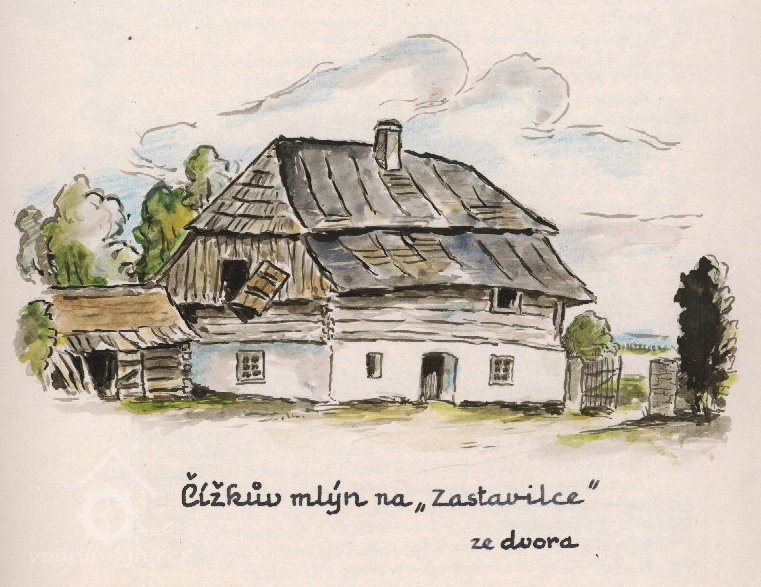 Čížkův mlýn na „Zastavilce“
ze dvora